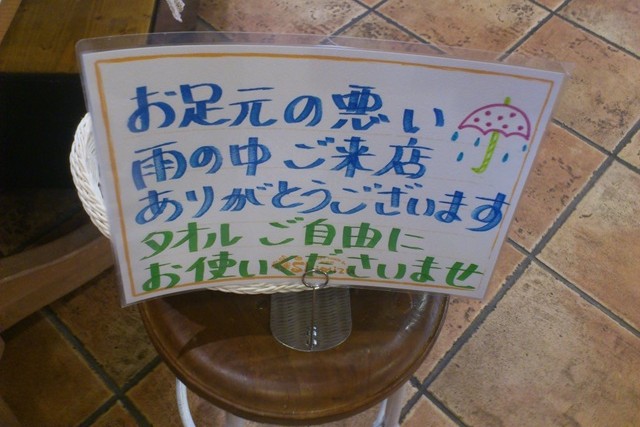 お足元の悪い
雨の中ご来店
ありがとうございます
タオルご自由に
お使いくださいませ